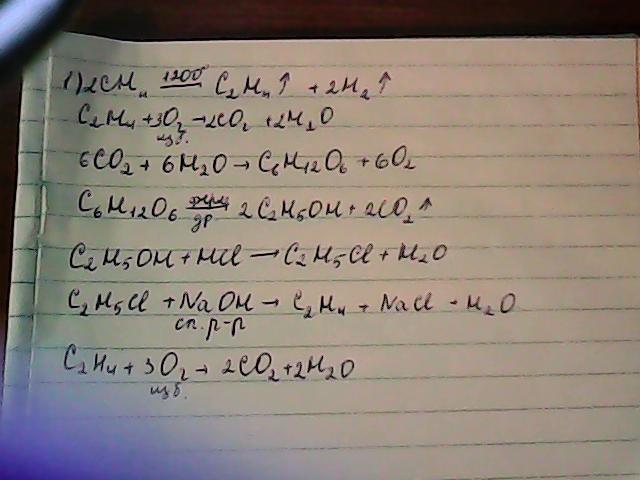 1) 2CH₄ 1200° C₂H₄↑ + 2H₂↑
C₂H₄ + 3O₂ → 2CO₂ + 2H₂O
изб.
6CO₂ + 6H₂O → C₆H₁₂O₆ + 6O₂
C₆H₁₂O₆ ферм 2C₂H₅OH + 2CO₂↑
др
C₂H₅OH + HCl → C₂H₅Cl + H₂O
C₂H₅Cl + NaOH → C₂H₄ + NaCl + H₂O
сп. р-р
C₂H₄ + 3O₂ → 2CO₂ + 2H₂O
изб.